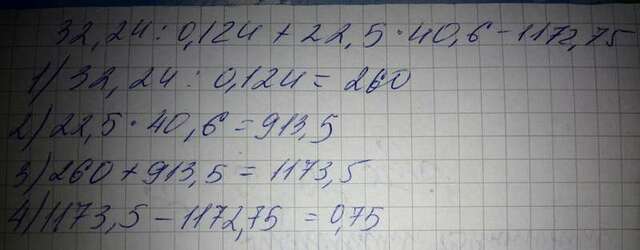 32,24:0,124+22,5·40,6-1172,75
1) 32,24:0,124=260
2) 22,5·40,6=913,5
3) 260+913,5=1173,5
4) 1173,5-1172,75=0,75